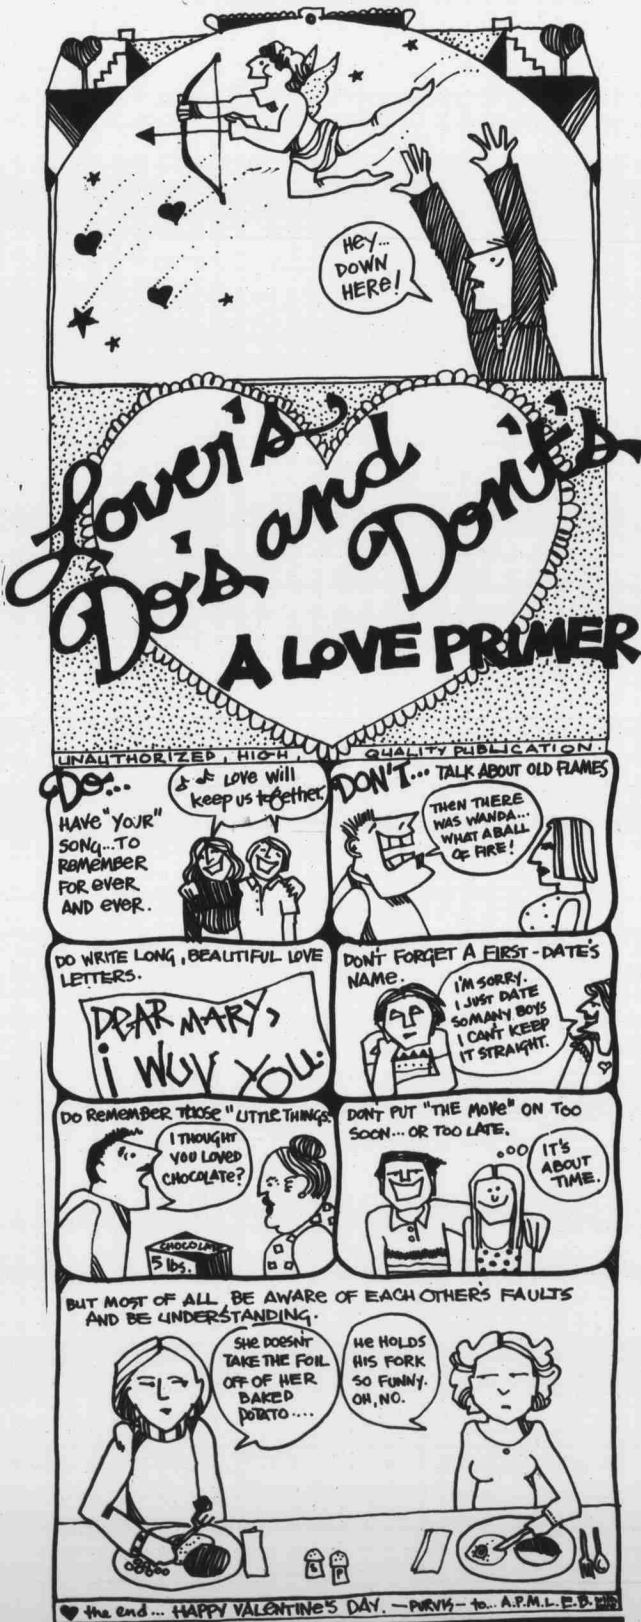 Hey...
DOWN
HERE!
Lover's
Do's and
Don't's
A LOVE PRIMER
UNAUTHORIZED, HIGH, QUALITY PUBLICATION
DO...
HAVE "YOUR"
SONG...TO
REMEMBER
FOR EVER
AND EVER.
♪ ♪ LOVE will
keep us together.
DON'T... TALK ABOUT OLD FLAMES
THEN THERE
WAS WANDA...
WHAT A BALL
OF FIRE!
DO WRITE LONG, BEAUTIFUL LOVE
LETTERS.
DEAR MARY,
i WUV YOU.
DON'T FORGET A FIRST-DATE'S
NAME.
I'M SORRY.
I JUST DATE
SO MANY BOYS
I CAN'T KEEP
IT STRAIGHT.
DO REMEMBER THOSE "LITTLE THINGS."
I THOUGHT
YOU LOVED
CHOCOLATE?
CHOCOLATE
5 lbs.
DON'T PUT "THE MOVE" ON TOO
SOON... OR TOO LATE.
IT'S
ABOUT
TIME.
BUT MOST OF ALL BE AWARE OF EACH OTHER'S FAULTS
AND BE UNDERSTANDING.
SHE DOESN'T
TAKE THE FOIL
OFF OF HER
BAKED
POTATO....
HE HOLDS
HIS FORK
SO FUNNY.
OH, NO.
S P
♥ the end... HAPPY VALENTINE'S DAY. —PURVIS— to... A.P.M.L.E.B.